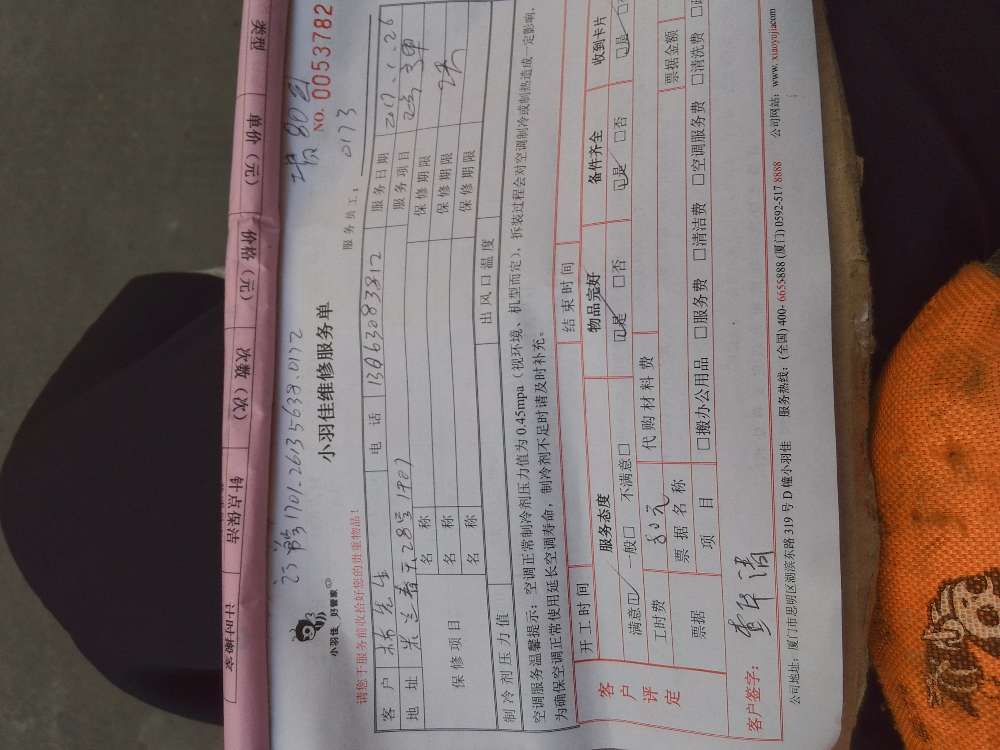 类型 单价（元） 价格（元） 次数（次） 针点保洁 计时
1701.26135638.0172
小羽佳 好管家
小羽佳维修服务单
NO. 0053782
请您于服务前收拾好您的贵重物品！
服务员工： 0173
客户 林先生 电话 13063083812 服务日期 2017.1.26
地址 28号1901 服务项目
保修项目 名称 保修期限
名称 保修期限
名称 保修期限
制冷剂压力值 出风口温度
空调服务温馨提示：空调正常制冷剂压力值为0.45mpa（视环境、机型而定），拆装过程会对空调制冷或制热造成一定影响，
为确保空调正常使用延长空调寿命，制冷剂不足时请及时补充。
开工时间 结束时间
客户评定 服务态度 物品完好 备件齐全 收到卡片
满意☑ 一般□ 不满意□ ☑是 □否 ☑是 □否 ☑是
工时费 80元 代购材料费
票据 票据名称 票据金额
项目 □搬办公用品 □服务费 □清洁费 □空调服务费 □清洗费
客户签字：
公司地址：厦门市思明区湖滨东路319号D幢小羽佳 服务热线：(全国) 400-6655888 (厦门) 0592-517 8888 公司网站：www.xiaoyujia.com